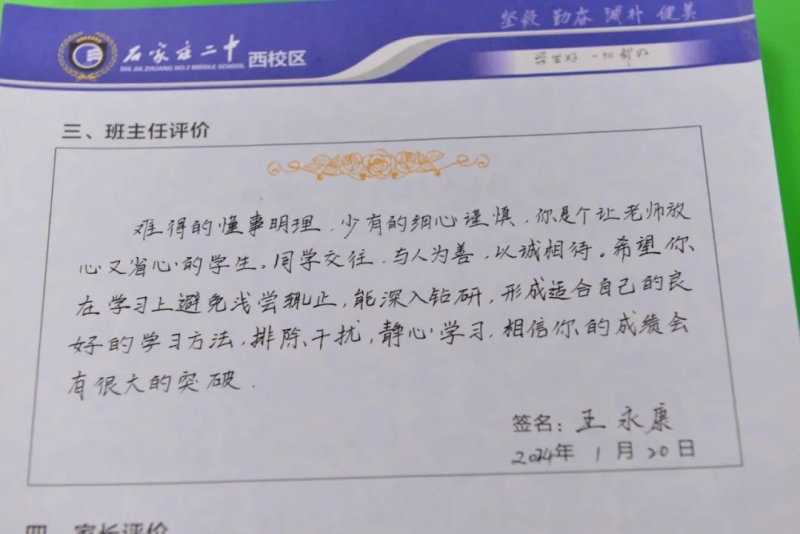 坚毅 勤奋 诚朴 健美
石家庄二中 西校区
SHI JIA ZHUANG NO.2 MIDDLE SCHOOL
学生好 一切都好
三、班主任评价
难得的懂事明理,少有的细心谨慎,你是个让老师放
心又省心的学生。同学交往,与人为善,以诚相待。希望你
在学习上避免浅尝辄止,能深入钻研,形成适合自己的良
好的学习方法,排除干扰,静心学习,相信你的成绩会
有很大的突破.
签名:王永康
2024年1月20日
四、家长评价